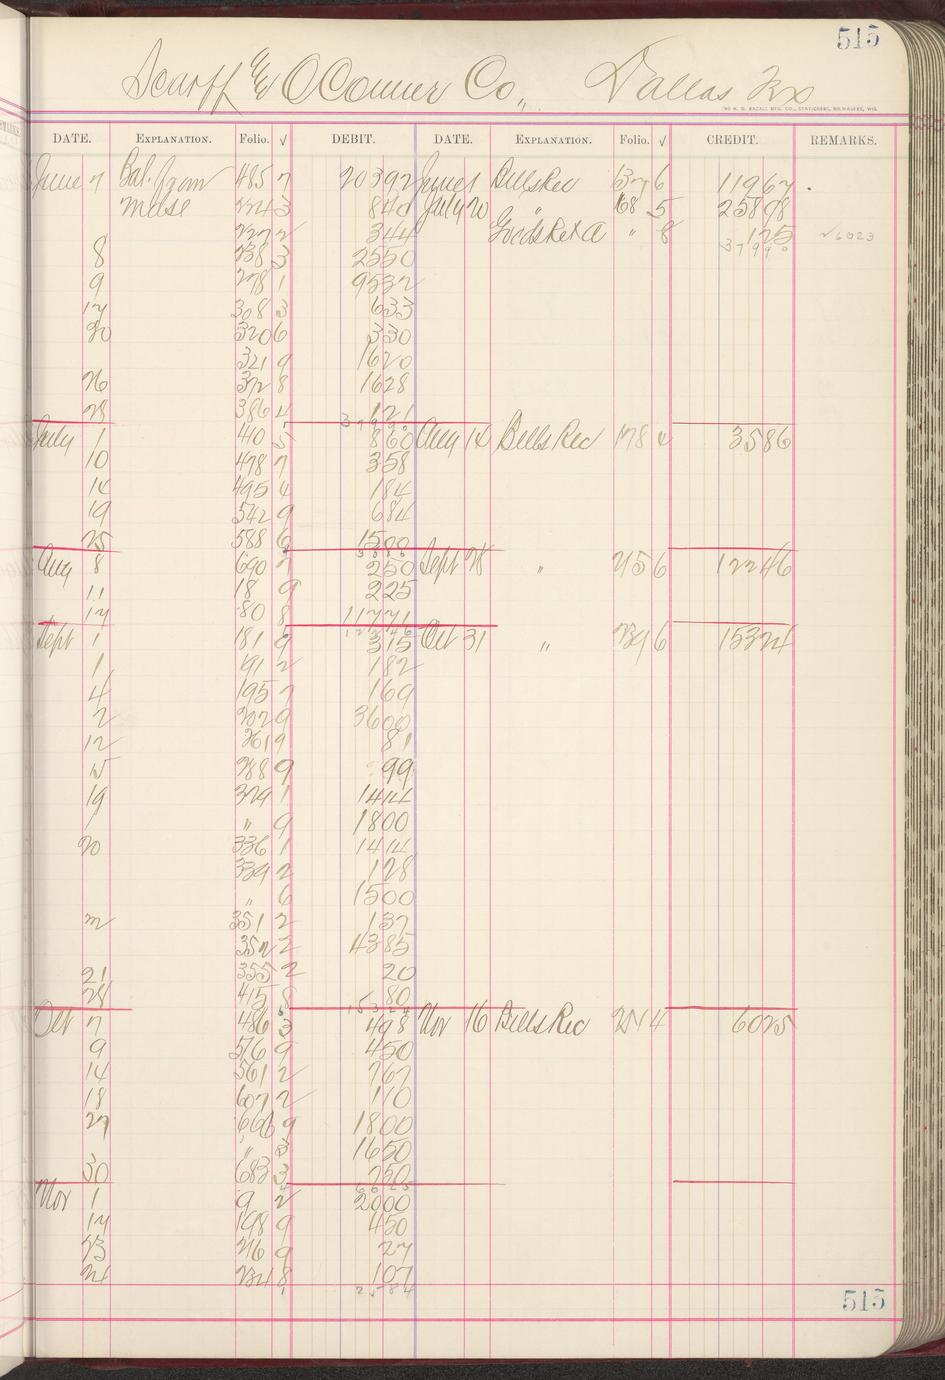 515
Scarff & OConner Co., Dallas Txs
DATE. EXPLANATION. Folio. √ DEBIT. DATE. EXPLANATION. Folio. √ CREDIT. REMARKS.
June 7 Bal. from 485 7 20392 June 1 Bills Rec 137 6 11967
Mdse 224 3 840 July 20 " 168 5 25898
227 2 344 Goods Ret a " 8 125
8 238 3 2550 37990
9 278 1 9532
17 308 3 633
20 320 6 330
321 9 1620
26 372 8 1628
28 386 4 121
37990
July 1 410 5 860 Aug 14 Bills Rec 178 4 3586
10 478 7 358
14 495 4 184
19 542 9 684
25 588 6 1500
3586
Aug 8 690 7 250 Sept 28 " 215 6 12246
11 18 9 225
17 80 8 11771
12246
Sept 1 181 9 315 Oct 31 " 239 6 15324
1 191 2 182
4 195 7 169
2 202 9 3600
12 261 9 81
15 288 9 99
19 329 1 1414
" 9 1800
20 336 1 1414
339 2 128
" 6 1500
351 2 137
352 2 4385
21 355 2 20
28 415 8 80
15324
Oct 7 486 3 498 Nov 16 Bills Rec 4 6025
9 516 9 450
14 561 2 767
18 607 2 110
27 661 9 1800
" 3 1650
30 683 3 750
6025
Nov 1 9 2 2000
17 198 9 450
23 216 9 27
24 234 8 107
2584
515